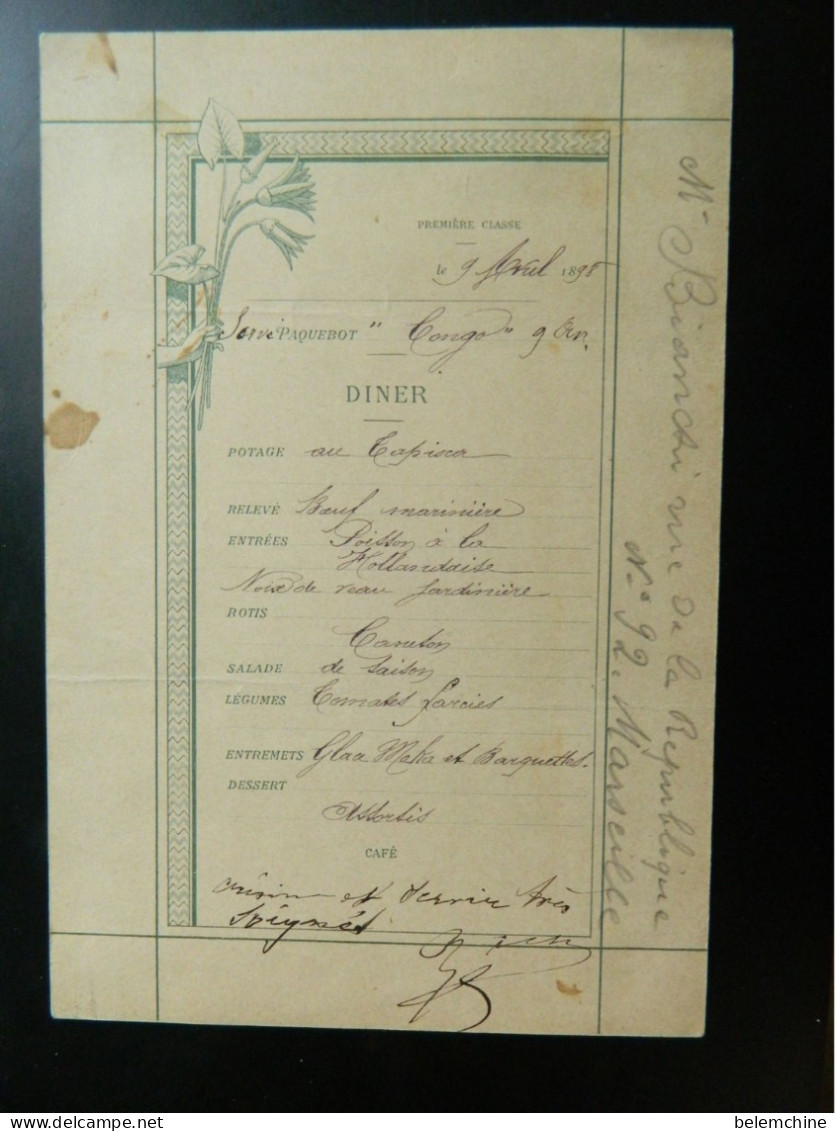 PREMIÈRE CLASSE
le 9 Avril 1898
Servi PAQUEBOT "Congo" 9
DINER
POTAGE au Tapioca
RELEVÉ Bœuf marinière
ENTRÉES Poisson à la
Hollandaise
Noix de veau Jardinière
ROTIS
Caneton
SALADE de saison
LÉGUMES Tomates farcies
ENTREMETS Glace Moka et Barquettes.
DESSERT
Assortis
CAFÉ
cuisine et service très
soignés
Mr Bianchi rue de la République
No 92. Marseille
delcampe.net
belemchine